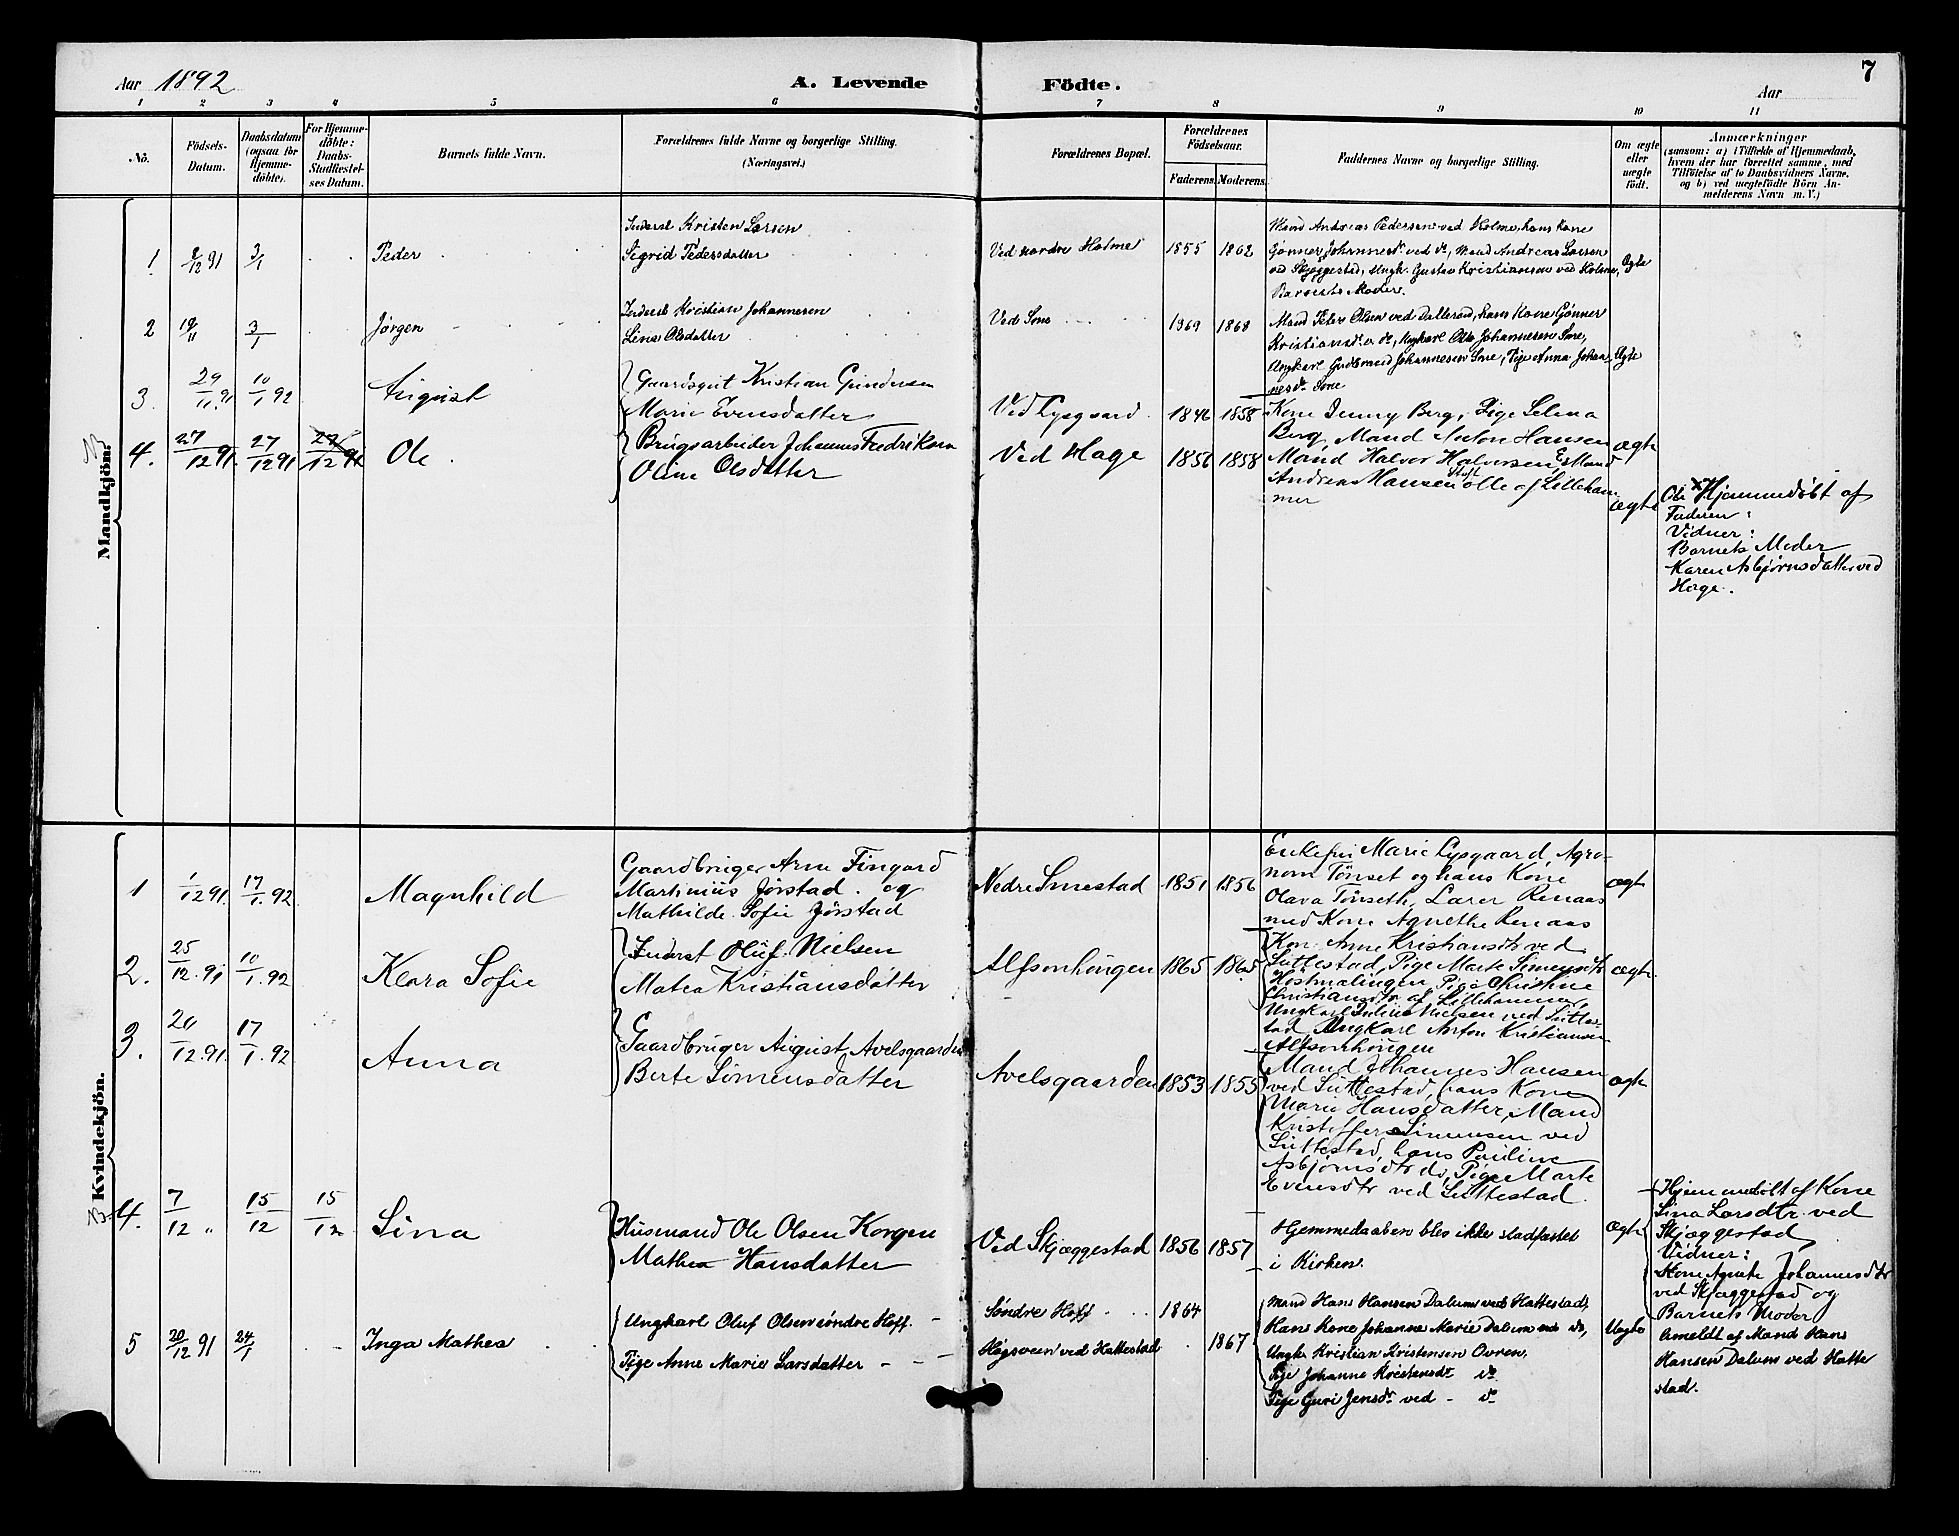 7
Aar 1892 A. Levende Födte. Aar
1 2 3 4 5 6 7 8 9 10 11
No.
Födsels-
Datum.
Daabsdatum
(ogsaa for
Hjemme-
döbte).
For Hjemme-
döbte:
Daabs-
Stadfæstel-
ses Datum.
Barnets fulde Navn.
Forældrenes fulde Navne og borgerlige Stilling.
(Næringsvei.)
Forældrenes Bopæl.
Forældrenes
Födselsaar.
Faderens. Moderens.
Faddernes Navne og borgerlige Stilling.
Om ægte
eller
uægte
födt.
Anmærkninger
(saasom: a) i Tilfælde af Hjemmedaab,
hvem der har forrettet samme, med
Tilföielse af to Daabsvidners Navne.
og b) ved uægtefödte Börn An-
melderens Navn m. V.)
Mandkjön.
1. 8/12 91 3/1 Peder
Inderst Kristen Larsen
Sigrid Pedersdatter
Ved nordre Holme 1855 1862
Mand Andreas Pedersen ved Holme, hans Kone
Gønner Johannesdr ved do, Mand Andreas Larsen
ved Skjæggestad, Ungk. Gustav Kristiansen ved Holme,
Barnets Moder.
Ægte
2 19/11 3/1 Jørgen
Inderst Kristian Johannesen
Lina Olsdatter
Ved Sme 1869 1868
Mand Peter Olsen ved Dallerud, hans Kone Gønner
Kristiansdr v. do, Ungkarl Ole Johannesen Sme,
Ungkarl Gudbrand Johannesen Sme, Pige Anna Johan
nesdr Sme
Ægte
3. 29/11.91 10/1 92 August
Gaardsgut Kristian Gundersen
Marie Evensdatter
Ved Lysgaard. 1846 1858
Kone Jenny Berg, Pige Selma
Berg, Mand Anton Hansen
ægte
4. 27/12 91. 27/12 91 27/12 91 Ole.
Brugsarbeider Johannes Fredriksen
Oline Olsdatter
Ved Hage 1856 1858
Mand Halvor Halversen, Mand
Andreas Hansen
af Lilleham
mer
ægte
Ole Hjemmedøbt af
Faderen:
Vidner:
Barnets Moder
Karen Asbjørnsdatter ved
Hage.
3 Kvindekjön.
1 1/12 91. 17/1. 92 Magnhild
Gaardbruger Arne Fingard
Martinius Jørstad. og
Mathilde Sofie Jørstad
Nedre Smestad 1851 1856
Enkefru Marie Lysgaard, Agro-
nom Tönset og hans Kone
Olava Tönseth, Lærer Renaas
med Kone Agnethe Renaas
ægte
2. 25/12. 91 10/1. 92 Klara Sofie
Inderst Oluf Nielsen
Matea Kristiansdatter
Alfsonhöugen 1865 1865
Kone Anne Kristiansdtr ved
Suttestad, Pige Marte Simensdtr
Höstmælingen, Pige Christine
Christiansdtr af Lillehammer,
Ungkarl Julius Nielsen ved Sutte-
stad, Ungkarl Anton Kristiansen
Alfsonhöugen
ægte.
3. 20/12. 91. 17/1. 92 Anna
Gaardbruger August Avelsgaarden
Berte Simensdatter
Avelsgaarden 1853 1855
Mand Johannes Hansen
ved Suttestad, hans Kone
Marie Hansdatter, Mand
Kristoffer Simensen ved
Suttestad, hans Pauline
Asbjørnsdtr do, Pige Marte
Evensdtr ved Suttestad.
ægte
4. 7/12 " 15/12 15/12 Lina
Husmand Ole Olsen Korgen
Mathea Hansdatter
Ved Skjæggestad 1856 1857
Hjemmedaaben blev ikke stadfæstet
i Kirken.
Ægte
Hjemmedøbt af Kone
Lina Larsdtr. ved
Skjæggestad,
Vidner:
Kone Agnete Johannesdtr
ved Skjæggestad og
Barnets Moder
5 20/12 91 24/1 Inga Mathea
Ungkarl Oluf Olsen söndre Hoff.
Pige Anne Marie Larsdatter
Søndre Hoff 1864
Høgsveen ved Hattestad 1867
Mand Hans Hansen Dalum ved Hattestad,
Hans Kone Johanne Marie Dalum ved do,
Ungk. Kristian Kristensen Ovren.
Pige Johanne Kristensdr do
Pige Guri Jensdr ved - do
Uægte
Anmeldt af Mand Hans
Hansen Dalum ved Hatte
stad.